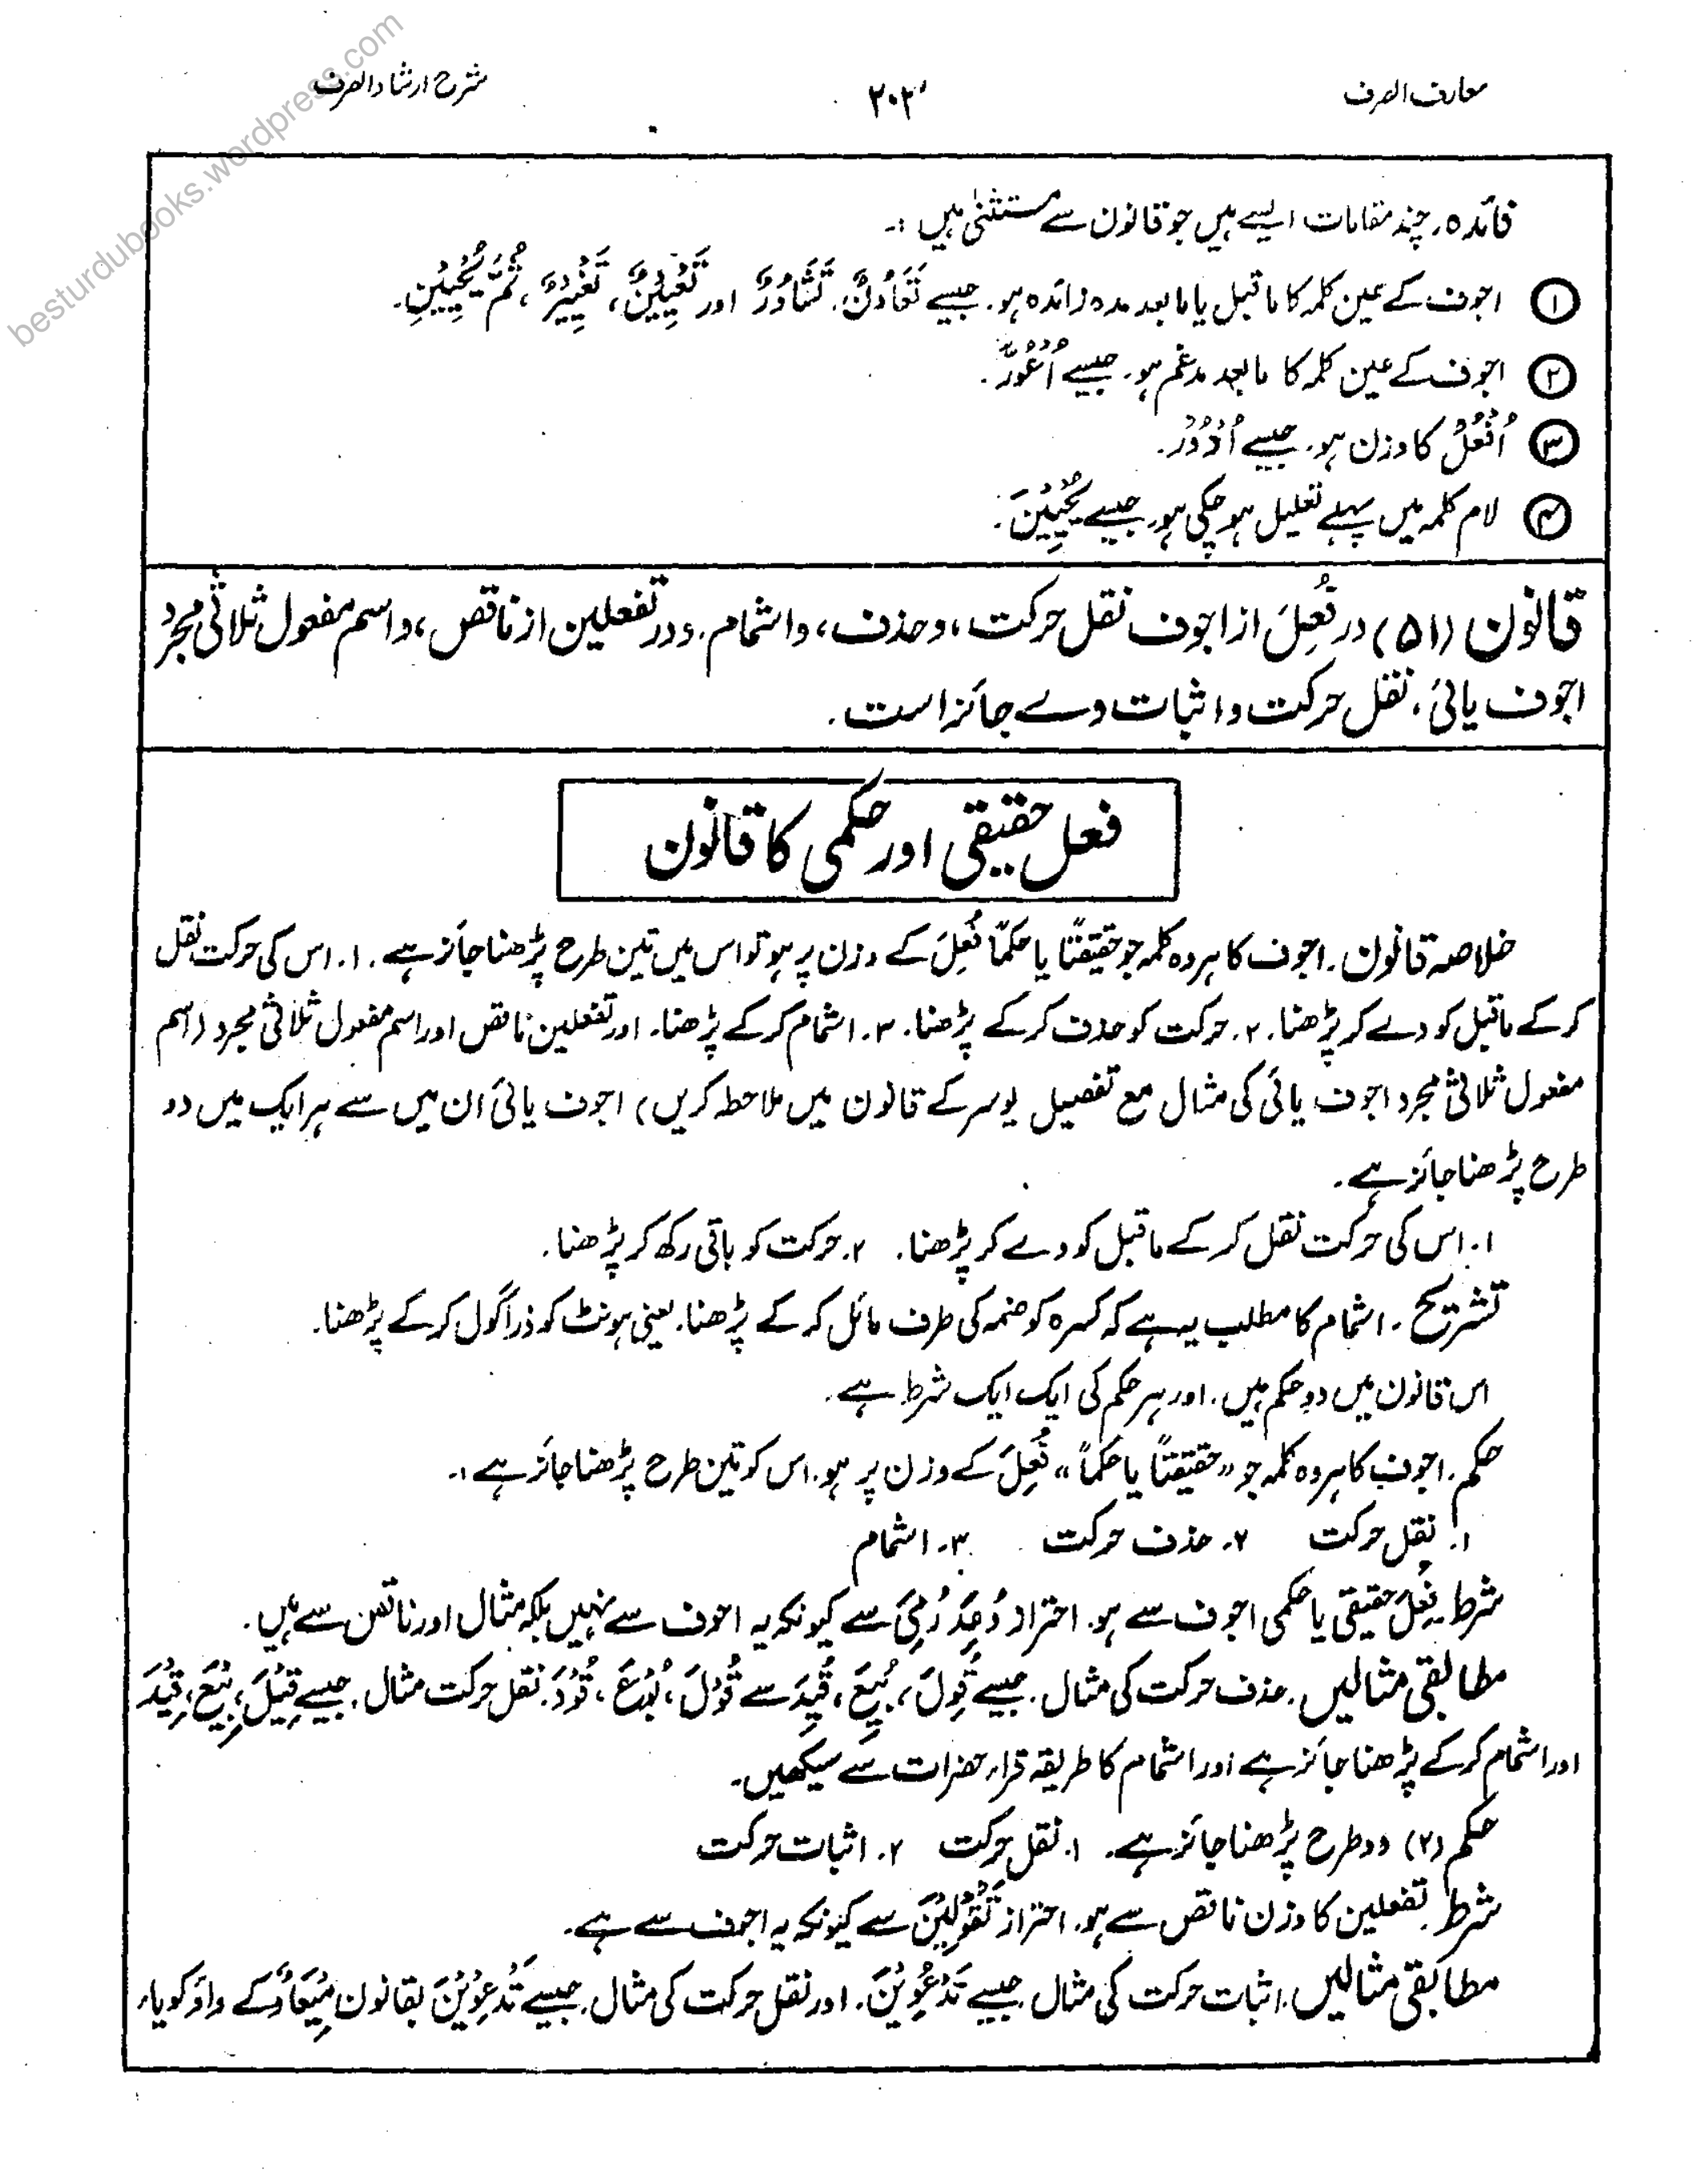 معارف الصرف
۲۰۳
شرح ارشاد الصرف
besturdubooks.wordpress.com
فائدہ۔ چند مقامات ایسے ہیں جو قانون سے مستثنیٰ ہیں :۔
① اجوف کے عین کلمہ کا ماقبل یا مابعد مدہ زائدہ ہو۔ جیسے تَعَاوُنٌ، تَشَاوُرٌ اور تَعْيِيْنٌ، تَغْيِيْرٌ، ثُمَّ يُحْيِيْنِ۔
② اجوف کے عین کلمہ کا مابعد مدغم ہو۔ جیسے اُعْوُرَّ۔
③ اُفْعُلُ کا وزن ہو۔ جیسے اُدْوُرُ۔
④ لام کلمہ میں پہلے تعلیل ہو چکی ہو۔ جیسے يُحْيِيْنَ۔
قانون (۵۱) در فُعِلَ از اجوف نقل حرکت، و حذف، و اشمام۔ و در تفعلین از ناقص، و اسم مفعول ثلاثی مجرد
اجوف یائی، نقل حرکت و اثبات وے جائز است۔
فعل حقیقی اور حکمی کا قانون
خلاصہ قانون۔ اجوف کا ہر وہ کلمہ جو حقیقتًا یا حکمًا فُعِلَ کے وزن پر ہو تو اس میں تین طرح پڑھنا جائز ہے۔ ۱۔ اس کی حرکت نقل
کر کے ماقبل کو دے کر پڑھنا۔ ۲۔ حرکت کو حذف کر کے پڑھنا۔ ۳۔ اشمام کر کے پڑھنا۔ اور تفعلین ناقص اور اسم مفعول ثلاثی مجرد (اسم
مفعول ثلاثی مجرد اجوف یائی کی مثال مع تفصیل یوسر کے قانون میں ملاحظہ کریں) اجوف یائی ان میں سے ہر ایک میں دو
طرح پڑھنا جائز ہے۔
۱۔ اس کی حرکت نقل کر کے ماقبل کو دے کر پڑھنا۔ ۲۔ حرکت کو باقی رکھ کر پڑھنا۔
تشریح۔ اشمام کا مطلب یہ ہے کہ کسرہ کو ضمہ کی طرف مائل کر کے پڑھنا۔ یعنی ہونٹ کو ذرا گول کر کے پڑھنا۔
اس قانون میں دو حکم ہیں۔ اور ہر حکم کی ایک ایک شرط ہے۔
حکم۔ اجوف کا ہر وہ کلمہ جو "حقیقتًا یا حکمًا" فُعِلَ کے وزن پر ہو۔ اس کو تین طرح پڑھنا جائز ہے :۔
۱۔ نقل حرکت ۲۔ حذف حرکت ۳۔ اشمام
شرط۔ فُعِلَ حقیقی یا حکمی اجوف سے ہو۔ احتراز وُعِدَ رُمِیَ سے کیونکہ یہ اجوف سے نہیں بلکہ مثال اور ناقص سے ہیں۔
مطابقی مثالیں۔ حذف حرکت کی مثال۔ جیسے قُوِلَ، بُيِعَ، قُيِدَ سے قُوْلَ، بُوْعَ، قُوْدَ۔ نقل حرکت مثال۔ جیسے قِيْلَ، بِيْعَ، قِيْدَ
اور اشمام کر کے پڑھنا جائز ہے اور اشمام کا طریقہ قراء حضرات سے سیکھیں۔
حکم (۲) دو طرح پڑھنا جائز ہے۔ ۱۔ نقل حرکت ۲۔ اثبات حرکت
شرط۔ تفعلین کا وزن ناقص سے ہو۔ احتراز تَقْوُلِيْنَ سے کیونکہ یہ اجوف سے ہے۔
مطابقی مثالیں۔ اثبات حرکت کی مثال جیسے تَدْعُوِيْنَ۔ اور نقل حرکت کی مثال۔ جیسے تَدْعِوْيْنَ بقانون مِيْعَادٌ کے واؤ کو یاء